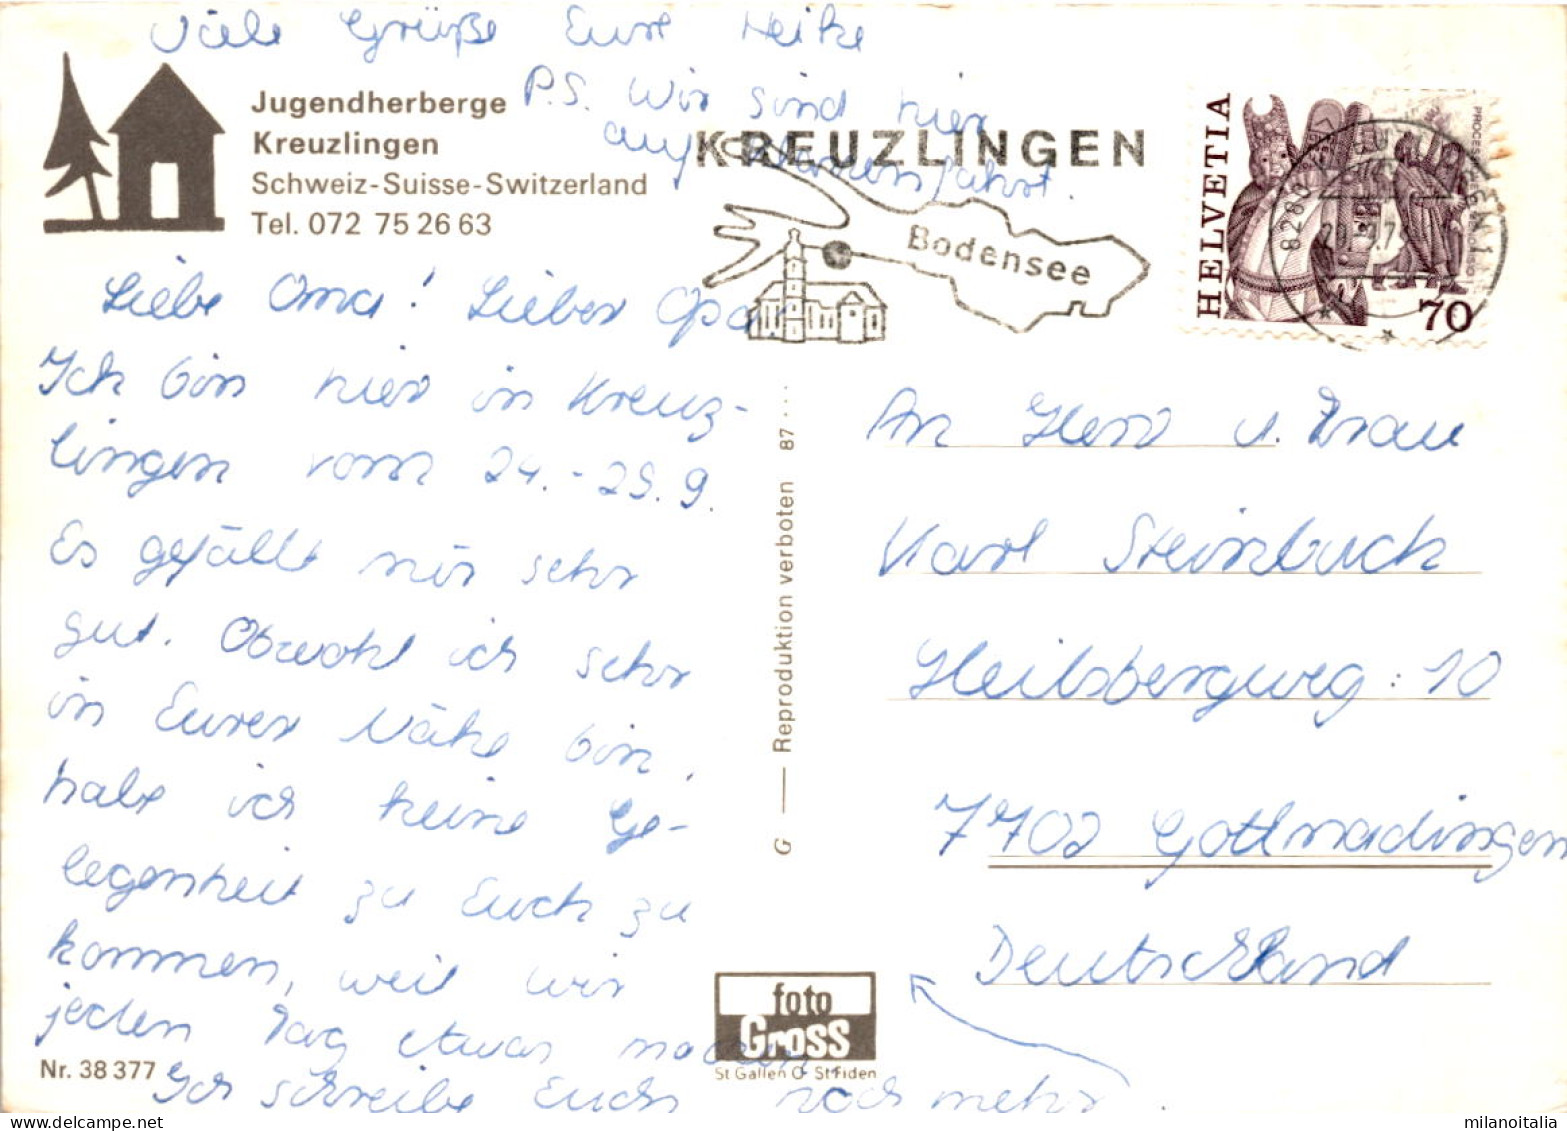 Viele Grüße Eure Heike
P.S. Wir sind hier
auf
Jugendherberge
Kreuzlingen
Schweiz-Suisse-Switzerland
Tel. 072 75 26 63
KREUZLINGEN
Bodensee
HELVETIA
70
Liebe Oma! Lieber Opa
Ich bin hier in Kreuz-
lingen vom 24.-29.9.
Es gefällt mir sehr
gut. Obwohl ich sehr
in Eurer Nähe bin,
habe ich keine Ge-
legenheit zu Euch zu
kommen, weil wir
jeden Tag etwas machen
Ich schreibe Euch noch mehr.
Nr. 38 377
G — Reproduktion verboten 87...
foto
Gross
St Gallen O St Fiden
An Herr u. Frau
Karl Steinbuch
Heilsbergweg: 10
7702 Gottmadingen
Deutschland
milanoitalia